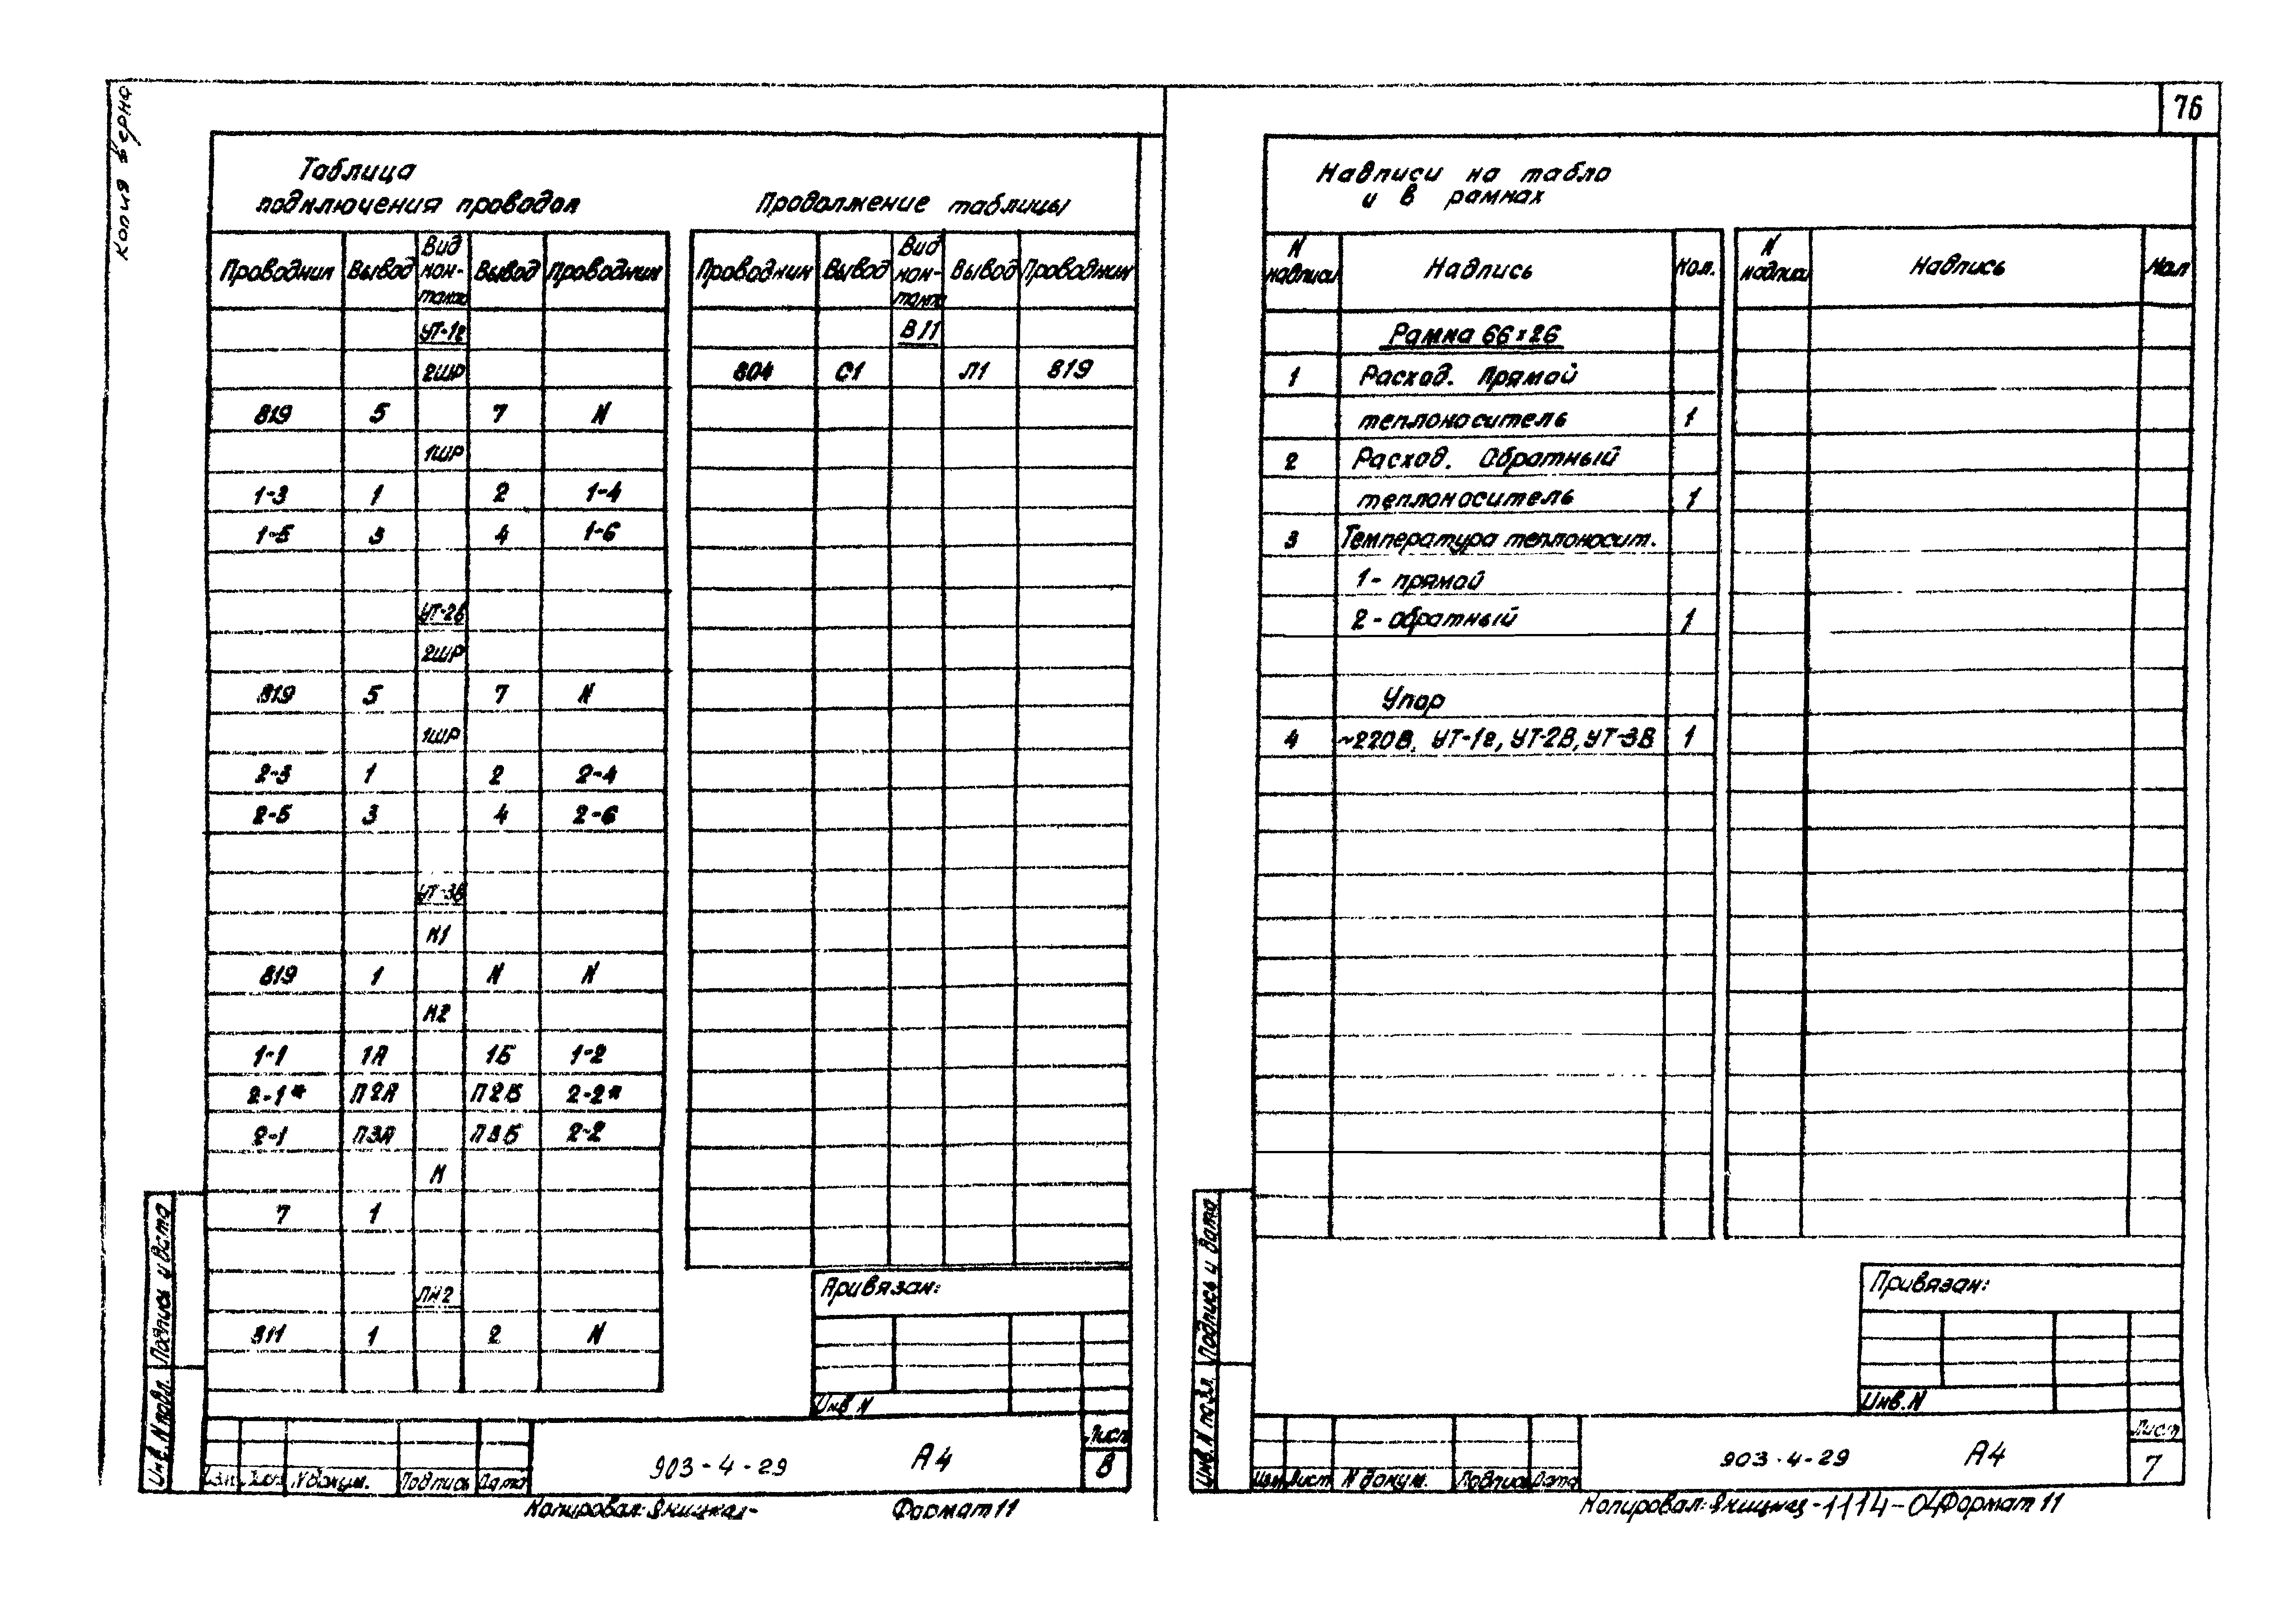 76
Копия верна
Таблица
подключения проводов
Проводник Вывод Вид кон-такта Вывод Проводник
УТ-1г
2ШР
819 5 7 N
1ШР
1-3 1 2 1-4
1-5 3 4 1-6
УТ-2В
2ШР
819 5 7 N
1ШР
2-3 1 2 2-4
2-5 3 4 2-6
УТ-3В
К1
819 1 N N
К2
1-1 1А 1Б 1-2
2-1* П2А П2Б 2-2*
2-1 П3А П3Б 2-2
К
7 1
ЛК2
811 1 2 N
Продолжение таблицы
Проводник Вывод Вид кон-такта Вывод Проводник
В11
804 С1 Л1 819
Привязан:
Инв N
Изм. Лист N докум. Подпись Дата
903-4-29 А4
Лист
6
Инв. N подл. Подпись и дата
Копировал: Формат 11
Надписи на табло
и в рамках
N надписи Надпись Кол. N надписи Надпись Кол
Рамка 66х26
1 Расход. Прямой
теплоноситель 1
2 Расход. Обратный
теплоноситель 1
3 Температура теплоносит.
1- прямой
2- обратный 1
Упор
4 ~220В, УТ-1г, УТ-2В, УТ-3В 1
Привязан:
Инв. N
Изм Лист N докум. Подпись Дата
903-4-29 А4
Лист
7
Инв. N подл. Подпись и дата
Копировал: -1114-04 Формат 11